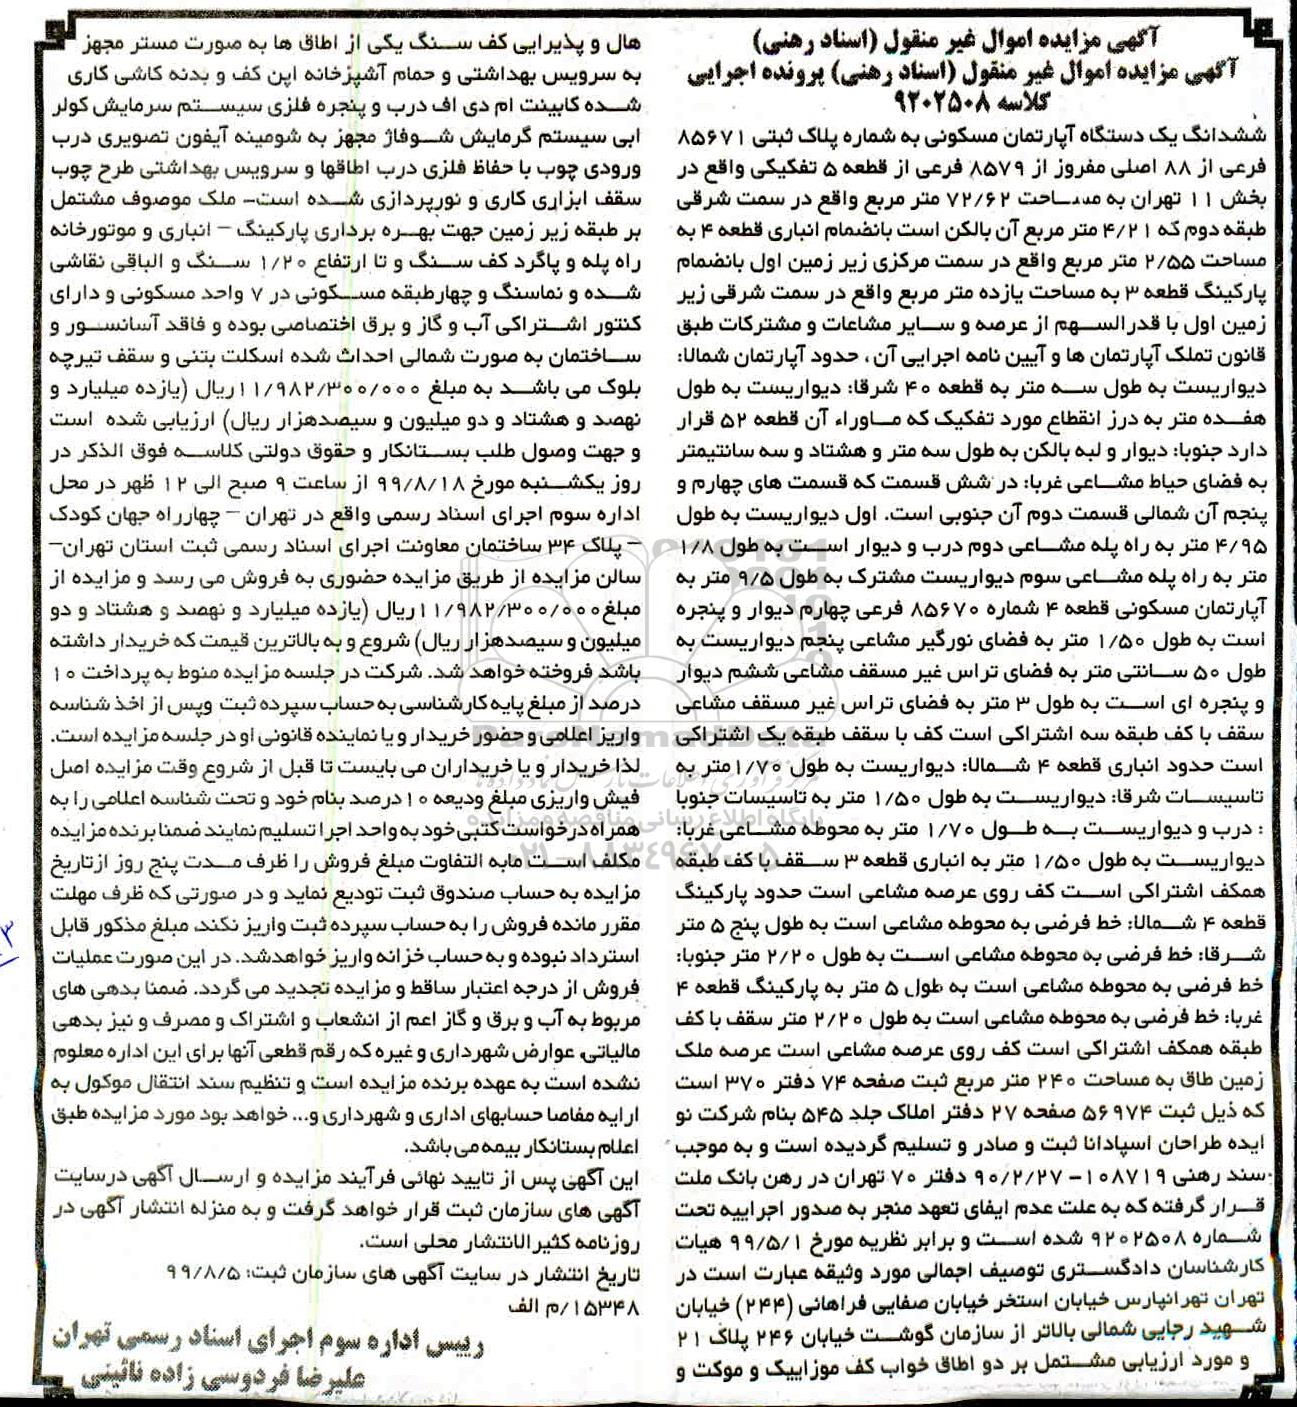 آگهی مزایده اموال غیر منقول (اسناد رهنی)
آگهی مزایده اموال غیر منقول (اسناد رهنی) پرونده اجرایی
کلاسه ۹۲۰۲۵۰۸
ششدانگ یک دستگاه آپارتمان مسکونی به شماره پلاک ثبتی ۸۵۶۷۱
فرعی از ۸۸ اصلی مفروز از ۸۵۷۹ فرعی از قطعه ۵ تفکیکی واقع در
بخش ۱۱ تهران به مساحت ۷۲/۶۲ متر مربع واقع در سمت شرقی
طبقه دوم که ۴/۲۱ متر مربع آن بالکن است بانضمام انباری قطعه ۴ به
مساحت ۲/۵۵ متر مربع واقع در سمت مرکزی زیر زمین اول بانضمام
پارکینگ قطعه ۳ به مساحت یازده متر مربع واقع در سمت شرقی زیر
زمین اول با قدرالسهم از عرصه و سایر مشاعات و مشترکات طبق
قانون تملک آپارتمان ها و آیین نامه اجرایی آن ، حدود آپارتمان شمالا:
دیواریست به طول سه متر به قطعه ۴۰ شرقا: دیواریست به طول
هفده متر به درز انقطاع مورد تفکیک که ماوراء آن قطعه ۵۲ قرار
دارد جنوبا: دیوار و لبه بالکن به طول سه متر و هشتاد و سه سانتیمتر
به فضای حیاط مشاعی غربا: در شش قسمت که قسمت های چهارم و
پنجم آن شمالی قسمت دوم آن جنوبی است. اول دیواریست به طول
۴/۹۵ متر به راه پله مشاعی دوم درب و دیوار است به طول ۱/۸
متر به راه پله مشاعی سوم دیواریست مشترک به طول ۹/۵ متر به
آپارتمان مسکونی قطعه ۴ شماره ۸۵۶۷۰ فرعی چهارم دیوار و پنجره
است به طول ۱/۵۰ متر به فضای نورگیر مشاعی پنجم دیواریست به
طول ۵۰ سانتی متر به فضای تراس غیر مسقف مشاعی ششم دیوار
و پنجره ای است به طول ۳ متر به فضای تراس غیر مسقف مشاعی
سقف با کف طبقه سه اشتراکی است کف با سقف طبقه یک اشتراکی
است حدود انباری قطعه ۴ شمالا: دیواریست به طول ۱/۷۰متر به
تاسیسات شرقا: دیواریست به طول ۱/۵۰ متر به تاسیسات جنوبا
: درب و دیواریست به طول ۱/۷۰ متر به محوطه مشاعی غربا:
دیواریست به طول ۱/۵۰ متر به انباری قطعه ۳ سقف با کف طبقه
همکف اشتراکی است کف روی عرصه مشاعی است حدود پارکینگ
قطعه ۴ شمالا: خط فرضی به محوطه مشاعی است به طول پنج ۵ متر
شرقا: خط فرضی به محوطه مشاعی است به طول ۲/۲۰ متر جنوبا:
خط فرضی به محوطه مشاعی است به طول ۵ متر به پارکینگ قطعه ۴
غربا: خط فرضی به محوطه مشاعی است به طول ۲/۲۰ متر سقف با کف
طبقه همکف اشتراکی است کف روی عرصه مشاعی است عرصه ملک
زمین طاق به مساحت ۲۴۰ متر مربع ثبت صفحه ۷۴ دفتر ۳۷۰ است
که ذیل ثبت ۵۶۹۷۴ صفحه ۲۷ دفتر املاک جلد ۵۴۵ بنام شرکت نو
ایده طراحان اسپادانا ثبت و صادر و تسلیم گردیده است و به موجب
سند رهنی ۱۰۸۷۱۹- ۹۰/۲/۲۷ دفتر ۷۰ تهران در رهن بانک ملت
قرار گرفته که به علت عدم ایفای تعهد منجر به صدور اجراییه تحت
شماره ۹۲۰۲۵۰۸ شده است و برابر نظریه مورخ ۹۹/۵/۱ هیات
کارشناسان دادگستری توصیف اجمالی مورد وثیقه عبارت است در
تهران تهرانپارس خیابان استخر خیابان صفایی فراهانی (۲۴۴) خیابان
شهید رجایی شمالی بالاتر از سازمان گوشت خیابان ۲۴۶ پلاک ۲۱
و مورد ارزیابی مشتمل بر دو اطاق خواب کف موزاییک و موکت و
هال و پذیرایی کف سنگ یکی از اطاق ها به صورت مستر مجهز
به سرویس بهداشتی و حمام آشپزخانه اپن کف و بدنه کاشی کاری
شده کابینت ام دی اف درب و پنجره فلزی سیستم سرمایش کولر
ابی سیستم گرمایش شوفاژ مجهز به شومینه آیفون تصویری درب
ورودی چوب با حفاظ فلزی درب اطاقها و سرویس بهداشتی طرح چوب
سقف ابزاری کاری و نورپردازی شده است- ملک موصوف مشتمل
بر طبقه زیر زمین جهت بهره برداری پارکینگ – انباری و موتورخانه
راه پله و پاگرد کف سنگ و تا ارتفاع ۱/۲۰ سنگ و الباقی نقاشی
شده و نماسنگ و چهارطبقه مسکونی در ۷ واحد مسکونی و دارای
کنتور اشتراکی آب و گاز و برق اختصاصی بوده و فاقد آسانسور و
ساختمان به صورت شمالی احداث شده اسکلت بتنی و سقف تیرچه
بلوک می باشد به مبلغ ۱۱/۹۸۲/۳۰۰/۰۰۰ریال (یازده میلیارد و
نهصد و هشتاد و دو میلیون و سیصدهزار ریال) ارزیابی شده است
و جهت وصول طلب بستانکار و حقوق دولتی کلاسه فوق الذکر در
روز یکشنبه مورخ ۹۹/۸/۱۸ از ساعت ۹ صبح الی ۱۲ ظهر در محل
اداره سوم اجرای اسناد رسمی واقع در تهران – چهارراه جهان کودک
– پلاک ۳۴ ساختمان معاونت اجرای اسناد رسمی ثبت استان تهران–
سالن مزایده از طریق مزایده حضوری به فروش می رسد و مزایده از
مبلغ۱۱/۹۸۲/۳۰۰/۰۰۰ریال (یازده میلیارد و نهصد و هشتاد و دو
میلیون و سیصدهزار ریال) شروع و به بالاترین قیمت که خریدار داشته
باشد فروخته خواهد شد. شرکت در جلسه مزایده منوط به پرداخت ۱۰
درصد از مبلغ پایه کارشناسی به حساب سپرده ثبت وپس از اخذ شناسه
واریز اعلامی و حضور خریدار و یا نماینده قانونی او در جلسه مزایده است.
لذا خریدار و یا خریداران می بایست تا قبل از شروع وقت مزایده اصل
فیش واریزی مبلغ ودیعه ۱۰درصد بنام خود و تحت شناسه اعلامی را به
همراه درخواست کتبی خود به واحد اجرا تسلیم نمایند ضمنا برنده مزایده
مکلف است مابه التفاوت مبلغ فروش را ظرف مدت پنج روز ازتاریخ
مزایده به حساب صندوق ثبت تودیع نماید و در صورتی که ظرف مهلت
مقرر مانده فروش را به حساب سپرده ثبت واریز نکند، مبلغ مذکور قابل
استرداد نبوده و به حساب خزانه واریز خواهدشد. در این صورت عملیات
فروش از درجه اعتبار ساقط و مزایده تجدید می گردد. ضمنا بدهی های
مربوط به آب و برق و گاز اعم از انشعاب و اشتراک و مصرف و نیز بدهی
مالیاتی، عوارض شهرداری و غیره که رقم قطعی آنها برای این اداره معلوم
نشده است به عهده برنده مزایده است و تنظیم سند انتقال موکول به
ارایه مفاصا حسابهای اداری و شهرداری و... خواهد بود مورد مزایده طبق
اعلام بستانکار بیمه می باشد.
این آگهی پس از تایید نهائی فرآیند مزایده و ارسال آگهی درسایت
آگهی های سازمان ثبت قرار خواهد گرفت و به منزله انتشار آگهی در
روزنامه کثیرالانتشار محلی است.
تاریخ انتشار در سایت آگهی های سازمان ثبت: ۹۹/۸/۵
۱۵۳۴۸/م الف
رییس اداره سوم اجرای اسناد رسمی تهران
علیرضا فردوسی زاده نائینی
ParsNamadData
پایگاه اطلاع رسانی مناقصه و مزایده
۰۲۱-۸۸۳۴۹۶۷۰-۵